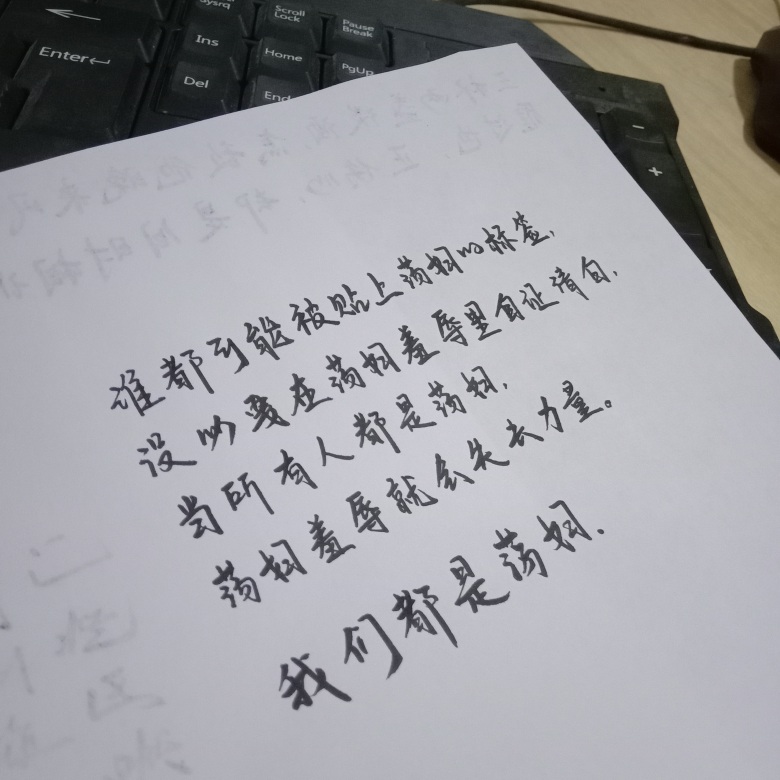 Sysrq
Scroll Lock
Pause Break
Enter
Ins
Home
PgUp
Del
End
谁都可能被贴上荡妇的标签,
没必要在荡妇羞辱里自证清白,
当所有人都是荡妇,
荡妇羞辱就会失去力量。
我们都是荡妇.